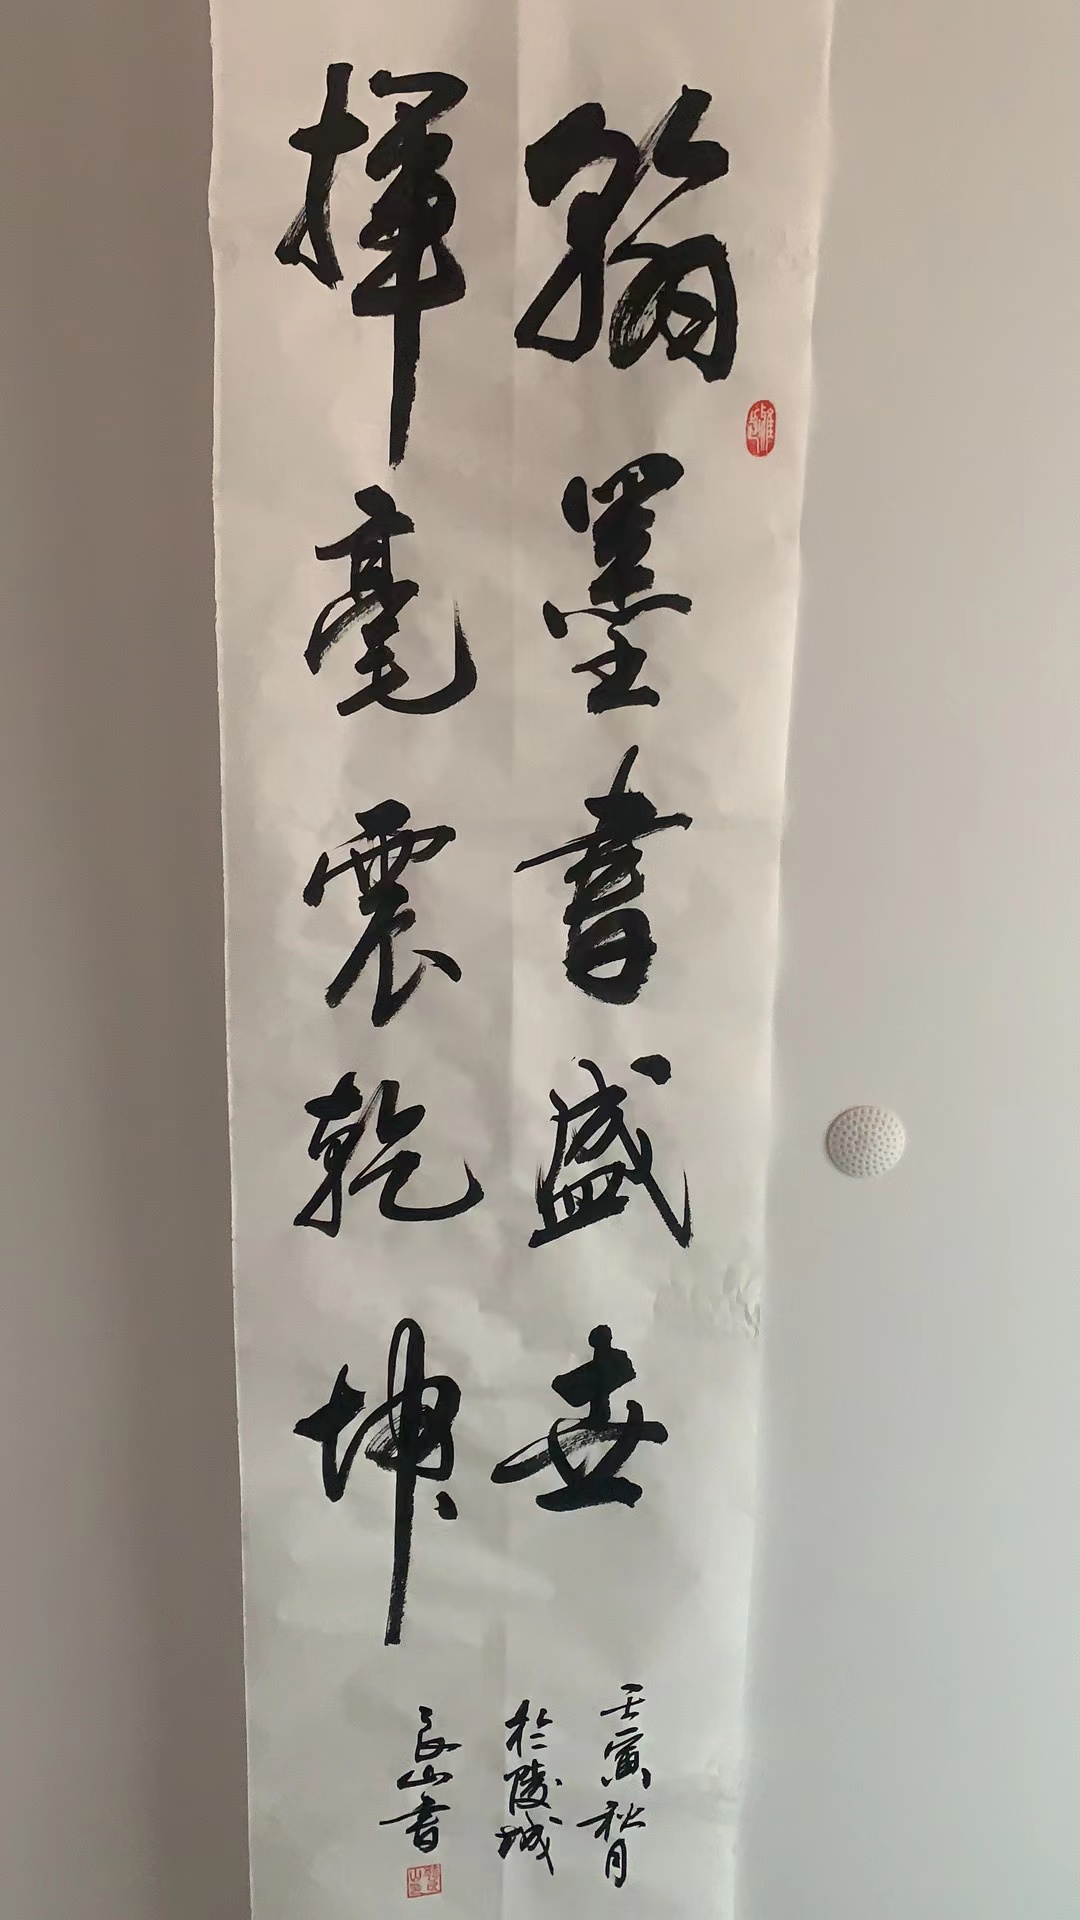 翰墨書盛世
揮毫震乾坤
壬寅秋月
於陵城
良山書